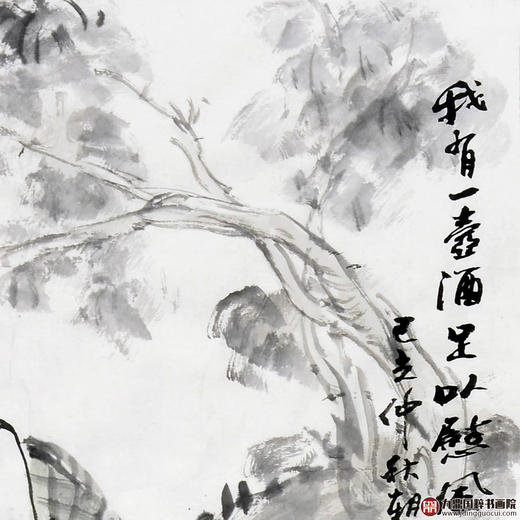 我有一壺酒足以慰风
己亥仲秋朝
九鼎国粹书画院
www.jdingguocui.com